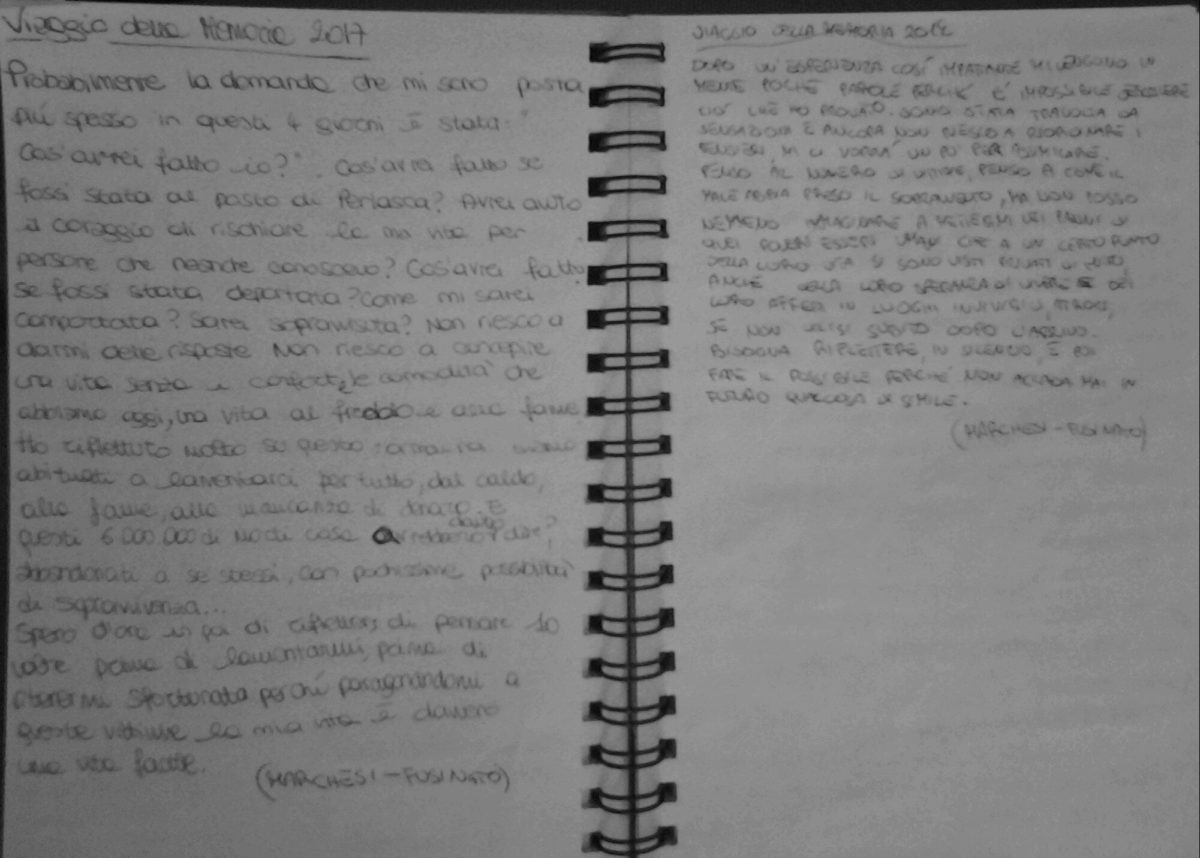 Viaggio della Memoria 2017
Probabilmente la domanda che mi sono posta
più spesso in questi 4 giorni è stata:"
Cos'avrei fatto io?". Cos'avrei fatto se
fossi stata al posto di Perlasca? Avrei avuto
il coraggio di rischiare la mia vita per
persone che neanche conoscevo? Cos'avrei fatto
se fossi stata deportata? Come mi sarei
comportata? Sarei sopravvissuta? Non riesco a
darmi delle risposte Non riesco a concepire
una vita senza i confort, le comodità che
abbiamo oggi, una vita al freddo e alla fame.
Ho riflettuto molto su questo: ormai siamo
abituati a lamentarci per tutto, dal caldo,
alla fame, alla mancanza di denaro. E
questi 6.000.000 di morti cosa avrebbero dovuto dire?
abbandonati a se stessi, con pochissime possibilità
di sopravvivenza...
Spero d'ora in poi di riflettere, di pensare 10
volte prima di lamentarmi, prima di
ritenermi sfortunata perché paragonandomi a
queste vittime la mia vita è davvero
una vita facile.
(MARCHESI-FUSINATO)
VIAGGIO DELLA MEMORIA
DOPO UN'ESPERIENZA COSÍ IMPATTANTE MI VENGONO IN
MENTE POCHE PAROLE PERCHÉ É IMPOSSIBILE DESCRIVERE
CIÓ CHE HO PROVATO. SONO STATA TRAVOLTA DA
SENSAZIONI E ANCORA NON RIESCO A RIORDINARE I
PENSIERI, MI CI VORRÁ UN PO' PER ASSIMILARE.
PENSO AL NUMERO DI VITTIME, PENSO A COME IL
MALE ABBIA PRESO IL SOPRAVVENTO, MA NON POSSO
NEMMENO IMMAGINARE A METTERMI NEI PANNI DI
QUEI POVERI ESSERI UMANI CHE A UN CERTO PUNTO
DELLA LORO VITA SI SONO VISTI PRIVATI DI TUTTO
ANCHE DELLA LORO SPERANZA DI VIVERE E DEI
LORO AFFETTI IN LUOGHI INVIVIBILI, ATROCI,
SE NON UCCISI SUBITO DOPO L'ARRIVO.
BISOGNA RIFLETTERE, IN SILENZIO, E POI
FARE IL POSSIBILE PERCHÉ NON ACCADA MAI IN
FUTURO QUALCOSA DI SIMILE.
(MARCHESI-FUSINATO)